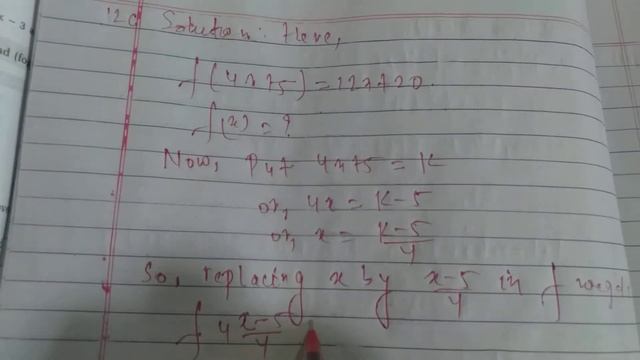 x - 3
12 c) Solution: Here,
f(4x+5) = 12x+20.
f(x) = ?
Now, Put 4x+5 = K
or, 4x = K-5
or, x = K-5/4
So, replacing x by x-5/4 in f
f 4 x-5/4